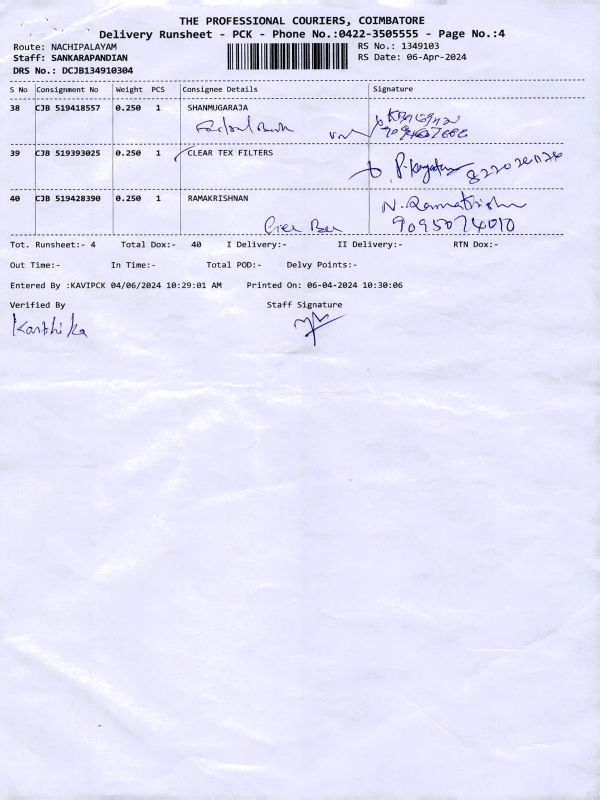 THE PROFESSIONAL COURIERS, COIMBATORE
Delivery Runsheet - PCK - Phone No.:0422-3505555 - Page No.:4
Route: NACHIPALAYAM RS No.: 1349103
Staff: SANKARAPANDIAN RS Date: 06-Apr-2024
DRS No.: DCJB134910304
S No Consignment No Weight PCS Consignee Details Signature
38 CJB 519418557 0.250 1 SHANMUGARAJA
39 CJB 519393025 0.250 1 CLEAR TEX FILTERS
40 CJB 519428390 0.250 1 RAMAKRISHNAN
9095074010
Tot. Runsheet:- 4 Total Dox:- 40 I Delivery:- II Delivery:- RTN Dox:-
Out Time:- In Time:- Total POD:- Delvy Points:-
Entered By :KAVIPCK 04/06/2024 10:29:01 AM Printed On: 06-04-2024 10:30:06
Verified By Staff Signature
Karthika